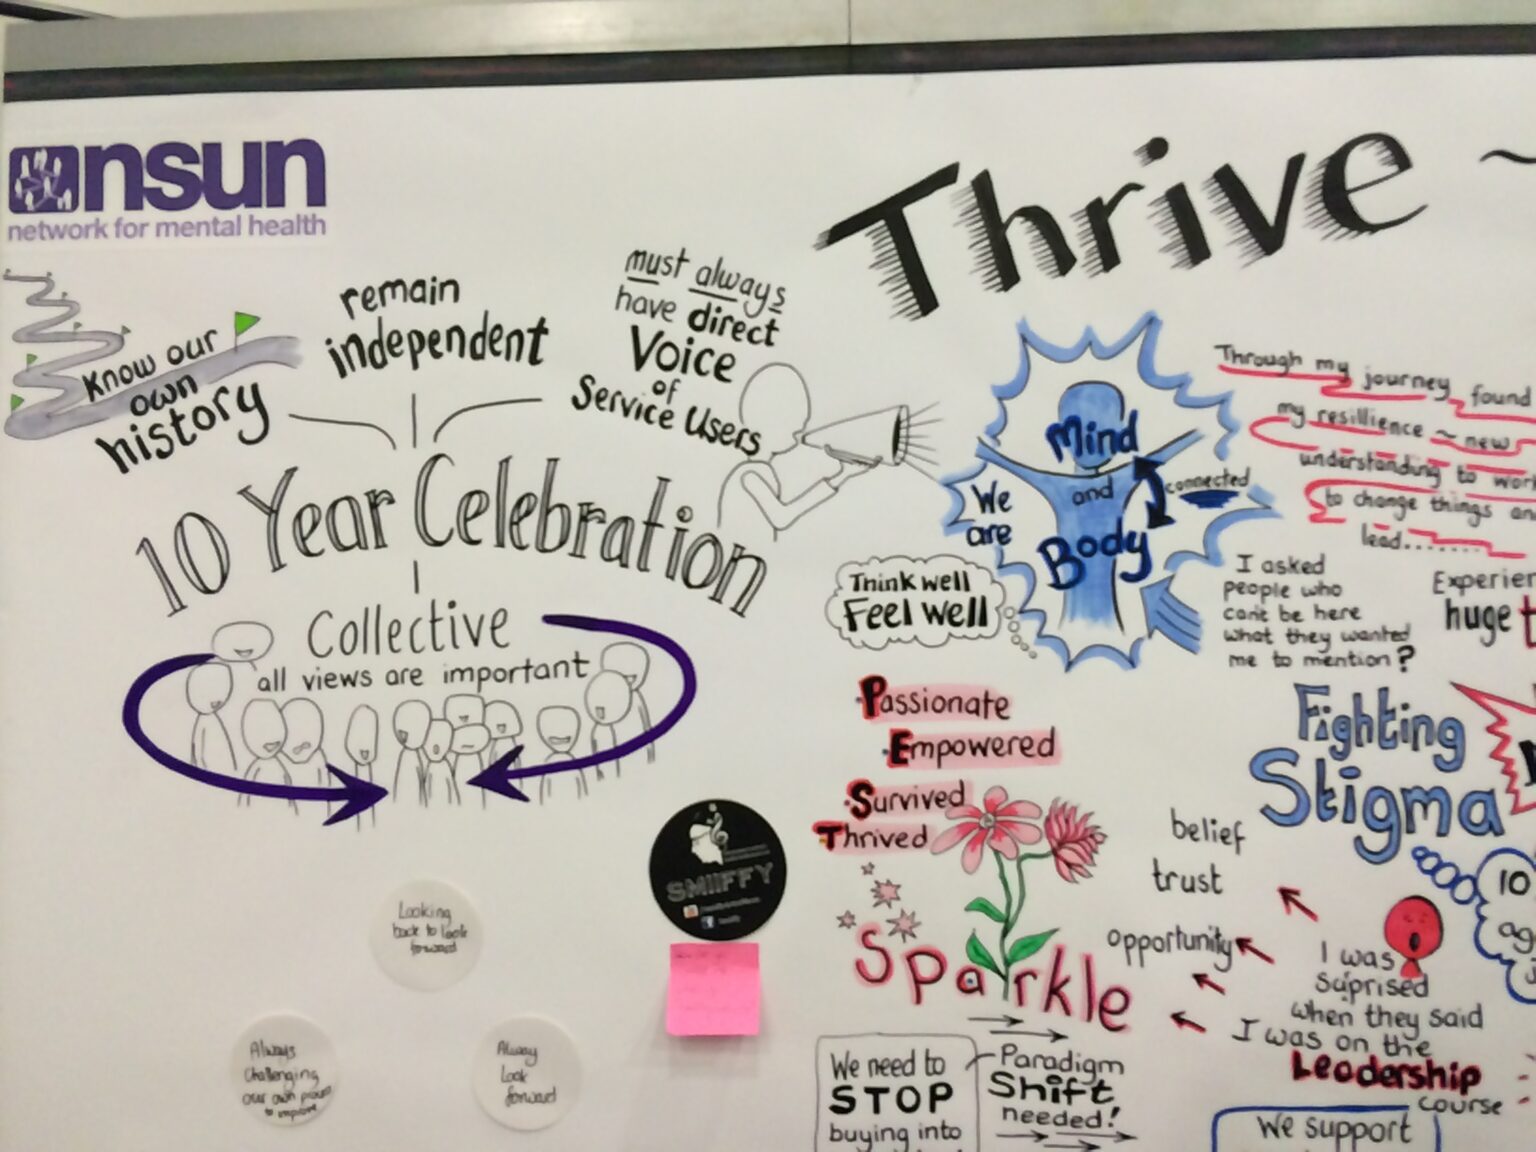 nsun
network for mental health
Know our
own
history
remain
independent
must always
have direct
Voice
of
Service Users
10 Year Celebration
Collective
all views are important
Looking
back to look
forward
Always
Challenging
our own
to improve
Always
Look
forward
SMIIFFY
Thrive ~
Mind
and
Body
connected
We
are
Think well
Feel well
Through my journey found
my resillience ~ new
understanding to work
to change things an
lead........
I asked
people who
cant be here
what they wanted
me to mention?
Experien
huge t
Passionate
Empowered
Survived
Thrived
Sparkle
Fighting
Stigma
belief
trust
opportunity
10
ag
I was
suprised
when they said
I was on the
Leodership
course
We need to
STOP
buying into
Paradigm
Shift
needed!
We support